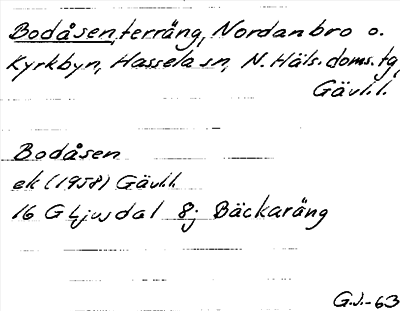 Bodåsen, terräng, Nordanbro o.
Kyrkbyn, Hassela sn, N. Häls. doms. tg,
Gävl.l.
Bodåsen
ek (1958) Gävl.l.
16 G Ljusdal 8j Bäckaräng
G.J.-63